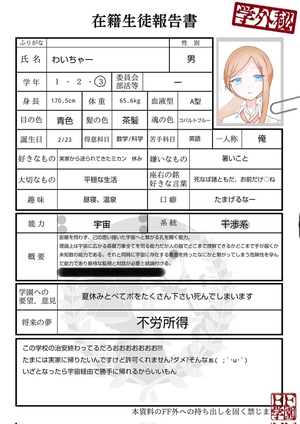 在籍生徒報告書
学外秘
ふりがな
性 別
氏 名 わいちゃー 男
学 年 1 ・ 2 ・ ③ 委員会 部活等 ー
身 長 170.5cm 体 重 65.6kg 血液型 A型
目の色 青色 髪の色 茶髪 魂の色 コバルトブルー
誕生日 2/23 得意科目 数学/科学 苦手科目 英語 一人称 俺
好きなもの 実家から送られてきたミカン 休み 嫌いなもの 暑いこと
大切なもの 平穏な生活 座右の銘 好きな言葉 死なば諸ともだ、お前だけ◯ね
趣 味 昼寝、温泉 口 癖 たまげるなー
能 力 宇宙 系 統 干渉系
概 要
距離を問わず、己の思い描いた宇宙へと繋がる孔を開く能力。
理論上は宇宙に広がる森羅万象全てを司る能力だが人の器でどこまで理解できるかどこまで手が届くか
未知数の能力である。それと同時に宇宙に存在する
だ能力であり厳格な監視と対話が必要と結論付ける。
学園への 要望、意見 夏休みとべてボをたくさん下さい死んでしまいます
将来の夢 不労所得
この学校の治安終わってるだろおおおおおお!!!
たまには実家に帰りたいんですけど許可くれません?ダメ?そんなぁ( ;´･ω･`)
いざとなったら宇宙経由で勝手に帰れるからいいもん
本資料のFF外への持ち出しを固く禁じます
FF学園